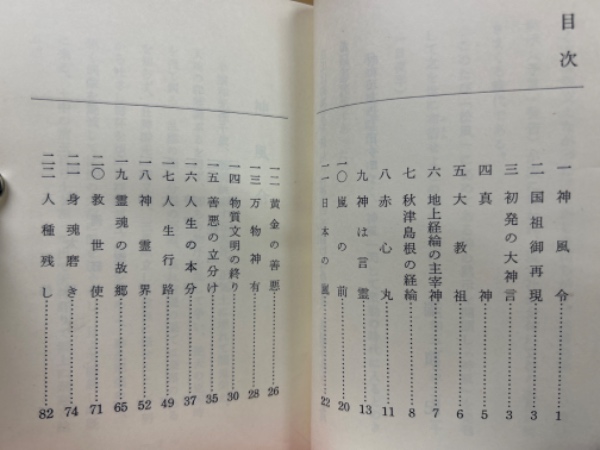 目次
一 神風令……1
二 国祖御再現……3
三 初発の大神言……3
四 真神……5
五 大教祖……6
六 地上経綸の主宰神……7
七 秋津島根の経綸……8
八 赤心丸……11
九 神は言霊……13
一〇 嵐の前……20
一一 日本の嵐……22
一二 黄金の善悪……26
一三 万物神有……28
一四 物質文明の終り……30
一五 善悪の立分け……35
一六 人生の本分……37
一七 人生行路……49
一八 神霊界……52
一九 霊魂の故郷……65
二〇 救世使……71
二一 身魂磨き……74
二二 人種残し……82